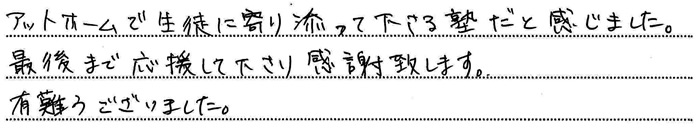 アットホームで生徒に寄り添って下さる塾だと感じました。
最後まで応援して下さり感謝致します。
有難うございました。